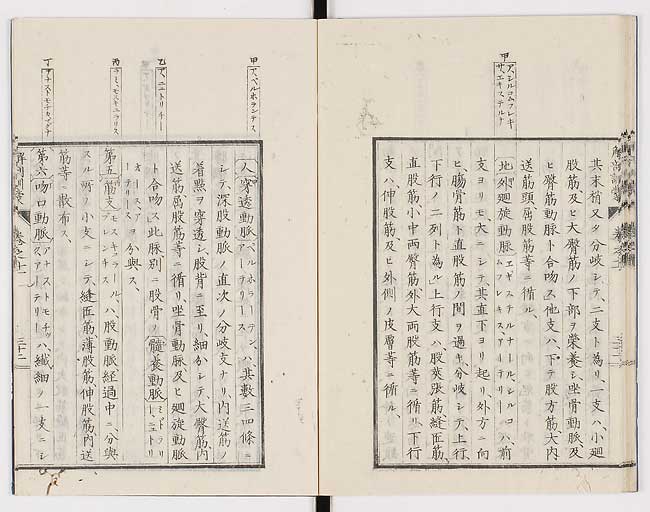 甲
アシルコムフレキ
サエキステルナ
其末梢又タ分岐シテ、二支ト為リ、一支ハ、小廻
股筋及ヒ大臀筋ノ下部ヲ榮養シ坐骨動脈及
ヒ臀筋動脈ト合吻ス他支ハ、下テ股方筋大内
送筋頭屈股筋等ニ循ル、
北外廻旋動脈エキステルナール、シルコ
ムフレキスアーテリーハ、前
支ヨリモ大ニシテ、其直下ヨリ起リ、外方ニ向
ヒ、腸骨筋ト直股筋ノ間ヲ過キ、分岐シテ、上行
下行ノ二列ト為ル、上行支ハ、股莢張筋縫匠筋
直股筋小中両臀筋外大両股筋等ニ循リ、下行
支ハ伸股筋及ヒ外側ノ皮膚等ニ循ル、
甲
アペルホランテス
乙
アニュトリチー
丙
ラミモスキュラリス
丁
アナストモチカマグナ
人穿透動脈ペルホラーテング
アーテリースハ、其數三四條ニ
シテ、深股動脈ノ直次ノ分岐支ナリ、内送筋ノ
着點ヲ穿透シ股背ニ至リ、細分シテ、大臀筋内
送筋屬股筋等ニ循リ、坐骨動脈及ヒ廻旋動脈
ト合吻ス此脈別ニ股骨ノ髓養動脈
ヲ分與ス、
第五筋支ハ股動脈經過中ニ、分與
スル所ノ小支ニシテ、縫匠筋薄股筋伸股筋内送
筋等ニ散布ス、
第六吻口動脈アナストモチック
アーテリースハ、纎細ノ一支ニシ